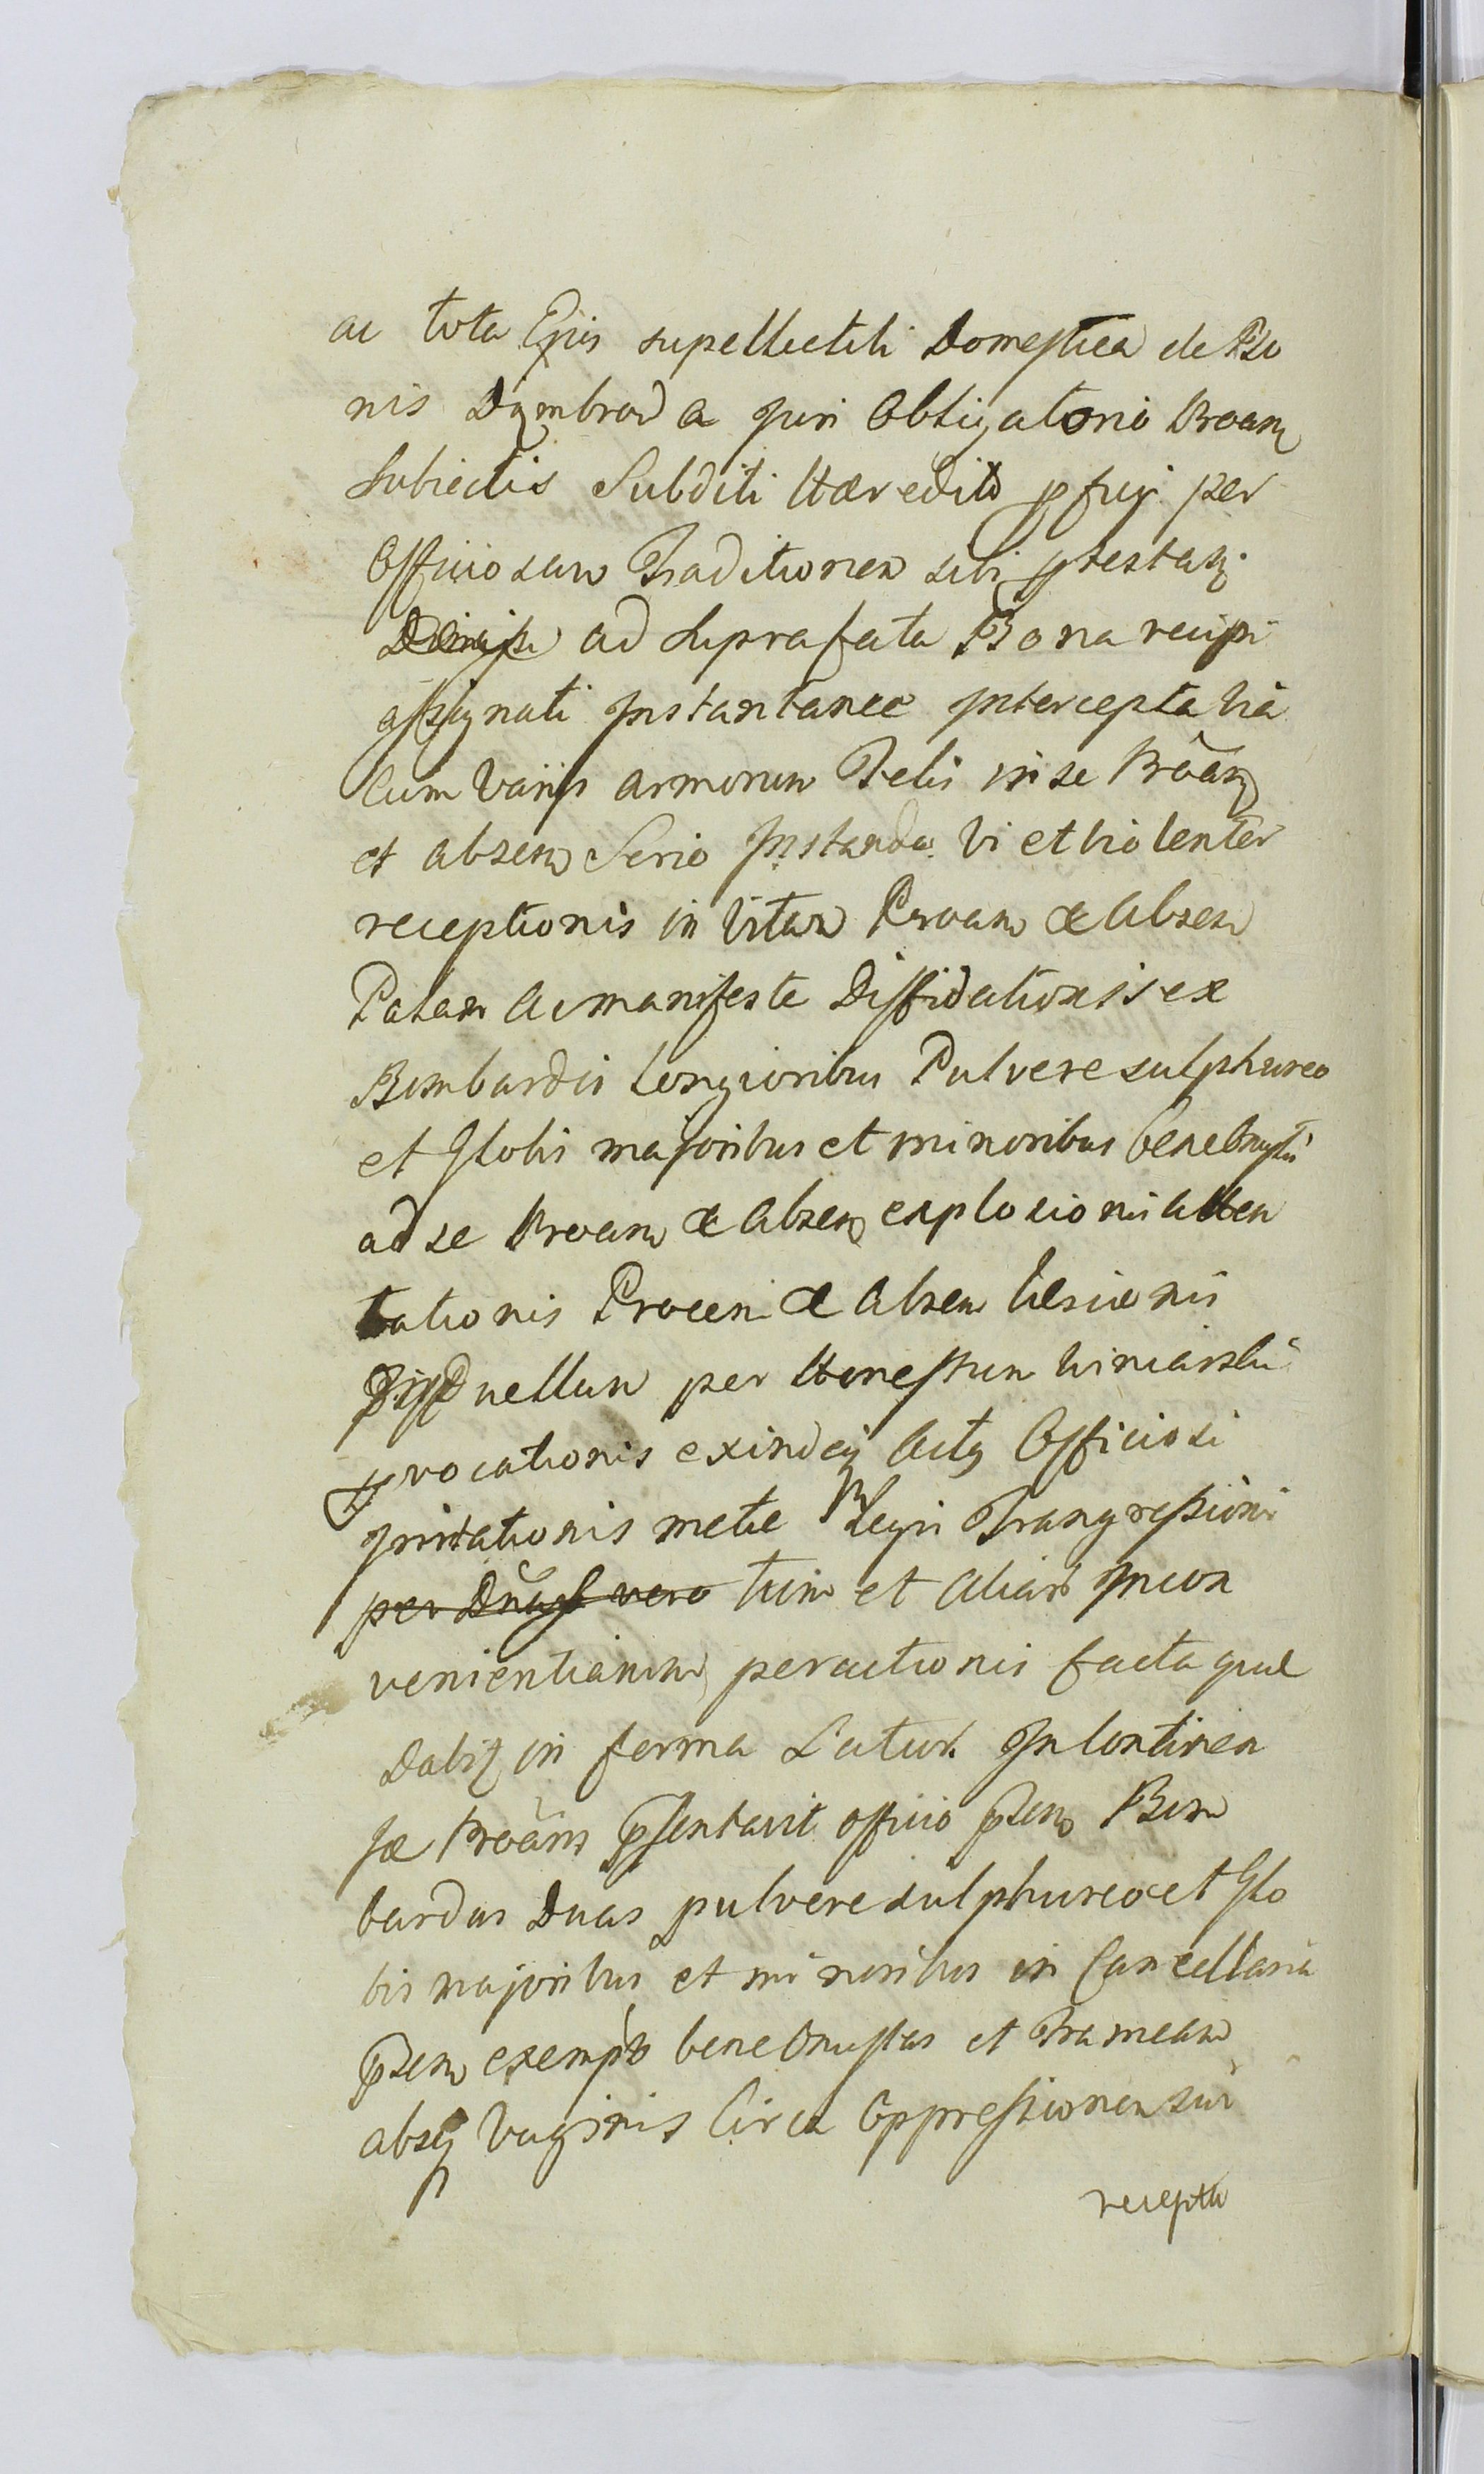 ac tota Ejus supellectili Domestica de Bo
nis Dąmbrowa Juri Obligatorio Proan
Subiectis Subditi Haeredit pfugi per
Officiosam Traditionem sibi prestan
ad suprafata Bona recipi
assignati Instantanee Intercepta via
Cum varijs armorum Telis in se Proan
et absen Serio Instanda vi et violenter
receptionis in vitam Proan & Absen
Palam ac manifeste Diffidationis ex
Bombardis Longioribus Pulvere sulphureo
et Globis majoribus et minoribus bene Onusti
ad se Proan & Absen explosionis atten
tationis Procen & Absen Laesionis
Duellum per Honestum Winiarski
pvocationis exindeq Actus Officiosi
Irritationis metae Legis Transgressionis
per vero tum et Aliar Incon
venientiarum peractionis facta quae
Dabit in forma Latiori In Continen
sae Proans psentavit officio psen Bom
bardas Duas pulvere sulphureo et Glo
bis majoribus et minoribus in Cancellaria
psen exempto bene Onustas et Frameam
absq vaginis Circa Oppressionem sui
recepta